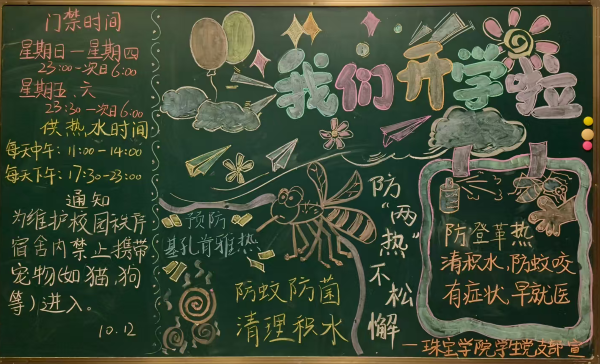 门禁时间
星期日—星期四
23:00—次日6:00
星期五、六
23:30—次日6:00
供热水时间
每天中午:11:00-14:00
每天下午:17:30-23:00
通知
为维护校园秩序
宿舍内禁止携带
宠物(如猫、狗
等)进入。
10.12
我们开学啦
预防
基孔肯雅热
防蚊防菌
清理积水
防"两热"不松懈
防登革热
清积水,防蚊咬
有症状,早就医
—珠宝学院学生党支部 宣